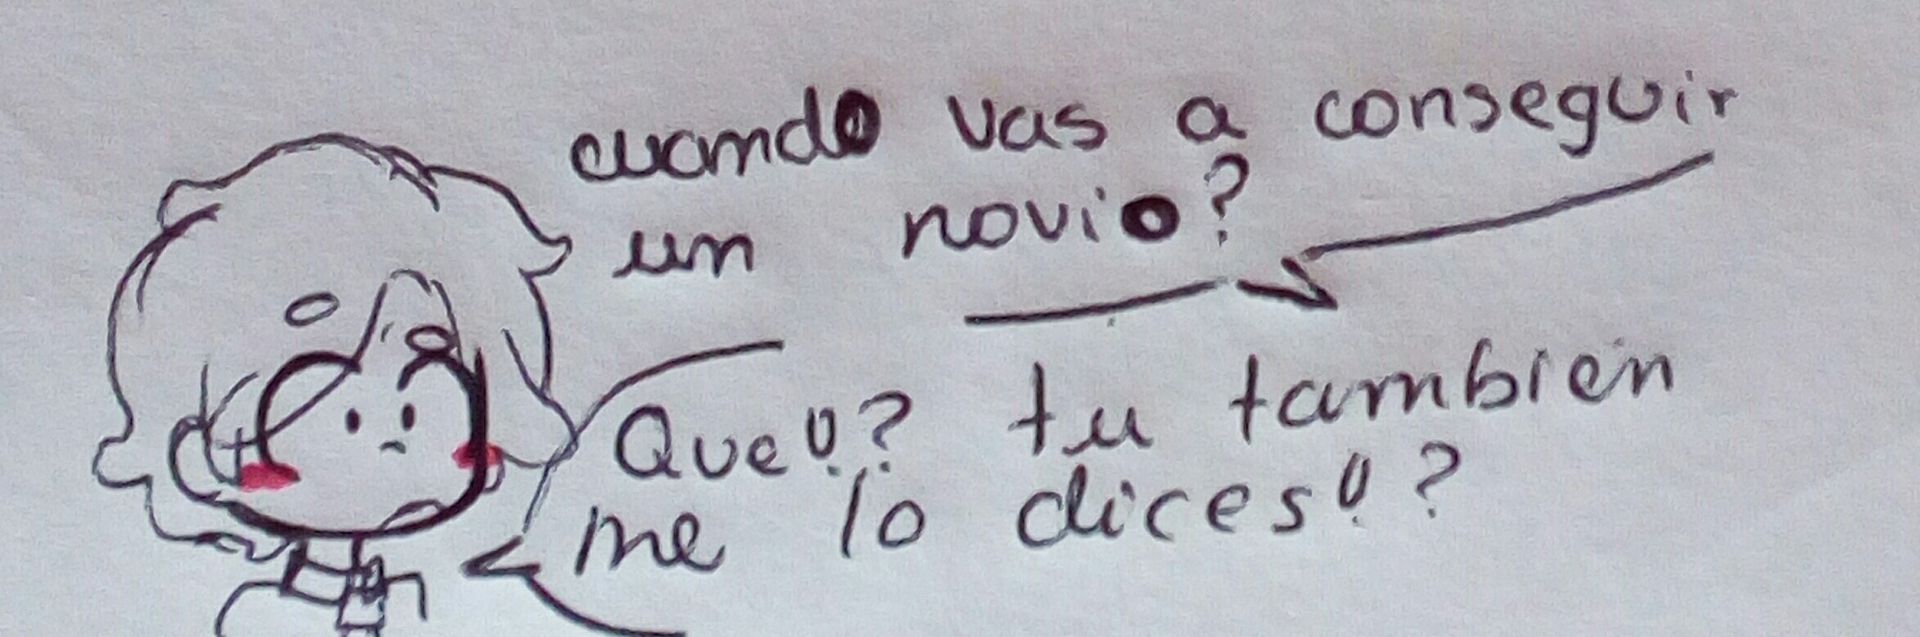 cuando vas a conseguir
un novio?
Que!? tu tambien
me lo dices!?